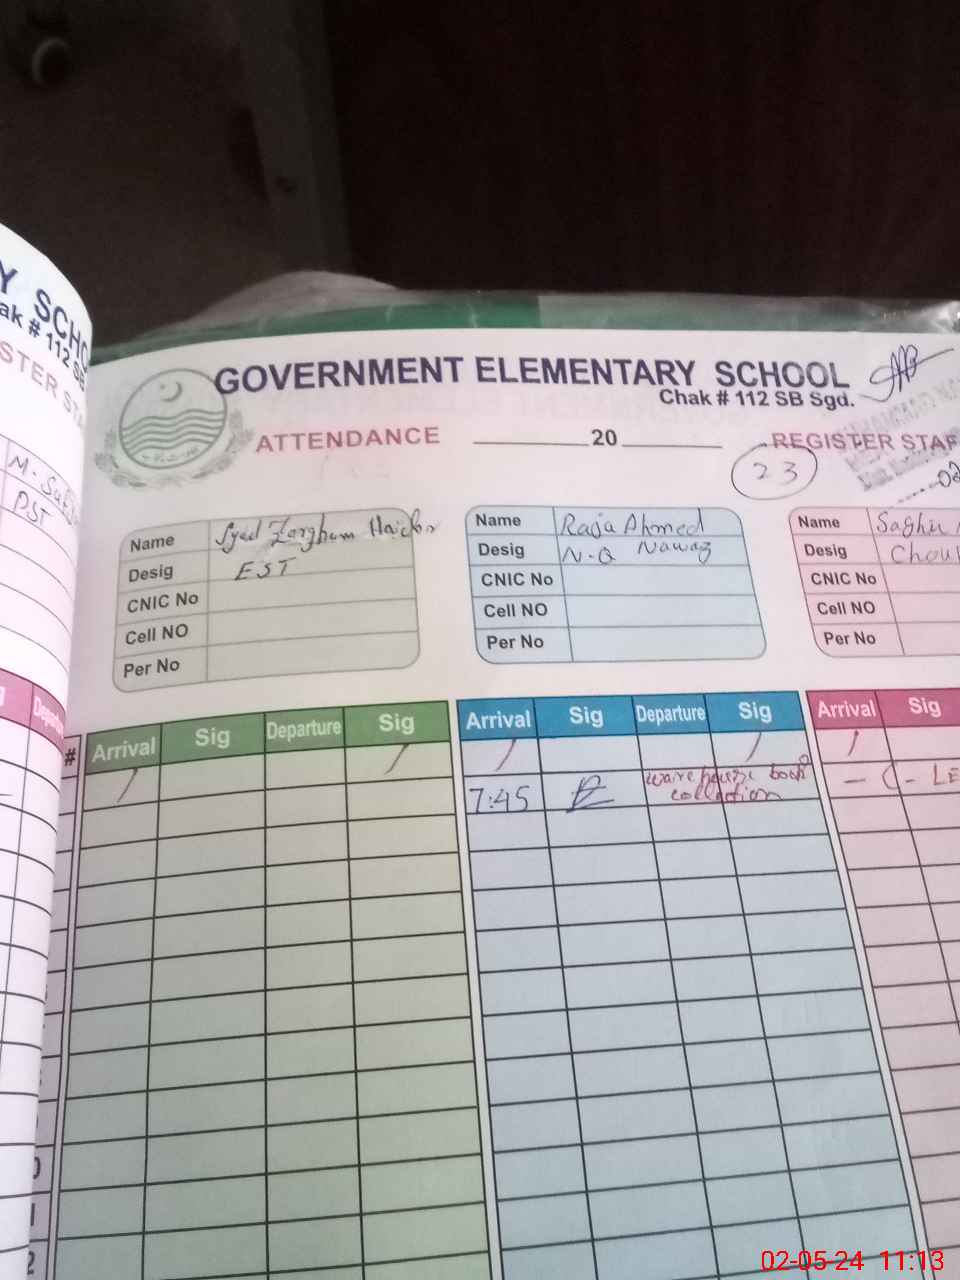 Y SCHO
ak # 112 SB
STER STA
M.
PST
GOVERNMENT ELEMENTARY SCHOOL
Chak # 112 SB Sgd.
ATTENDANCE ____________ 20 ____________ REGISTER STAF
23
Name Syed Zargham Haider
Desig EST
CNIC No
Cell NO
Per No
Name Raja Ahmed
Desig N-Q Nawaz
CNIC No
Cell NO
Per No
Name Saghir
Desig Chou
CNIC No
Cell NO
Per No
# Arrival Sig Departure Sig
Arrival Sig Departure Sig
Arrival Sig
7:45 warehouse book
collection
LE
02-05-24 11:13